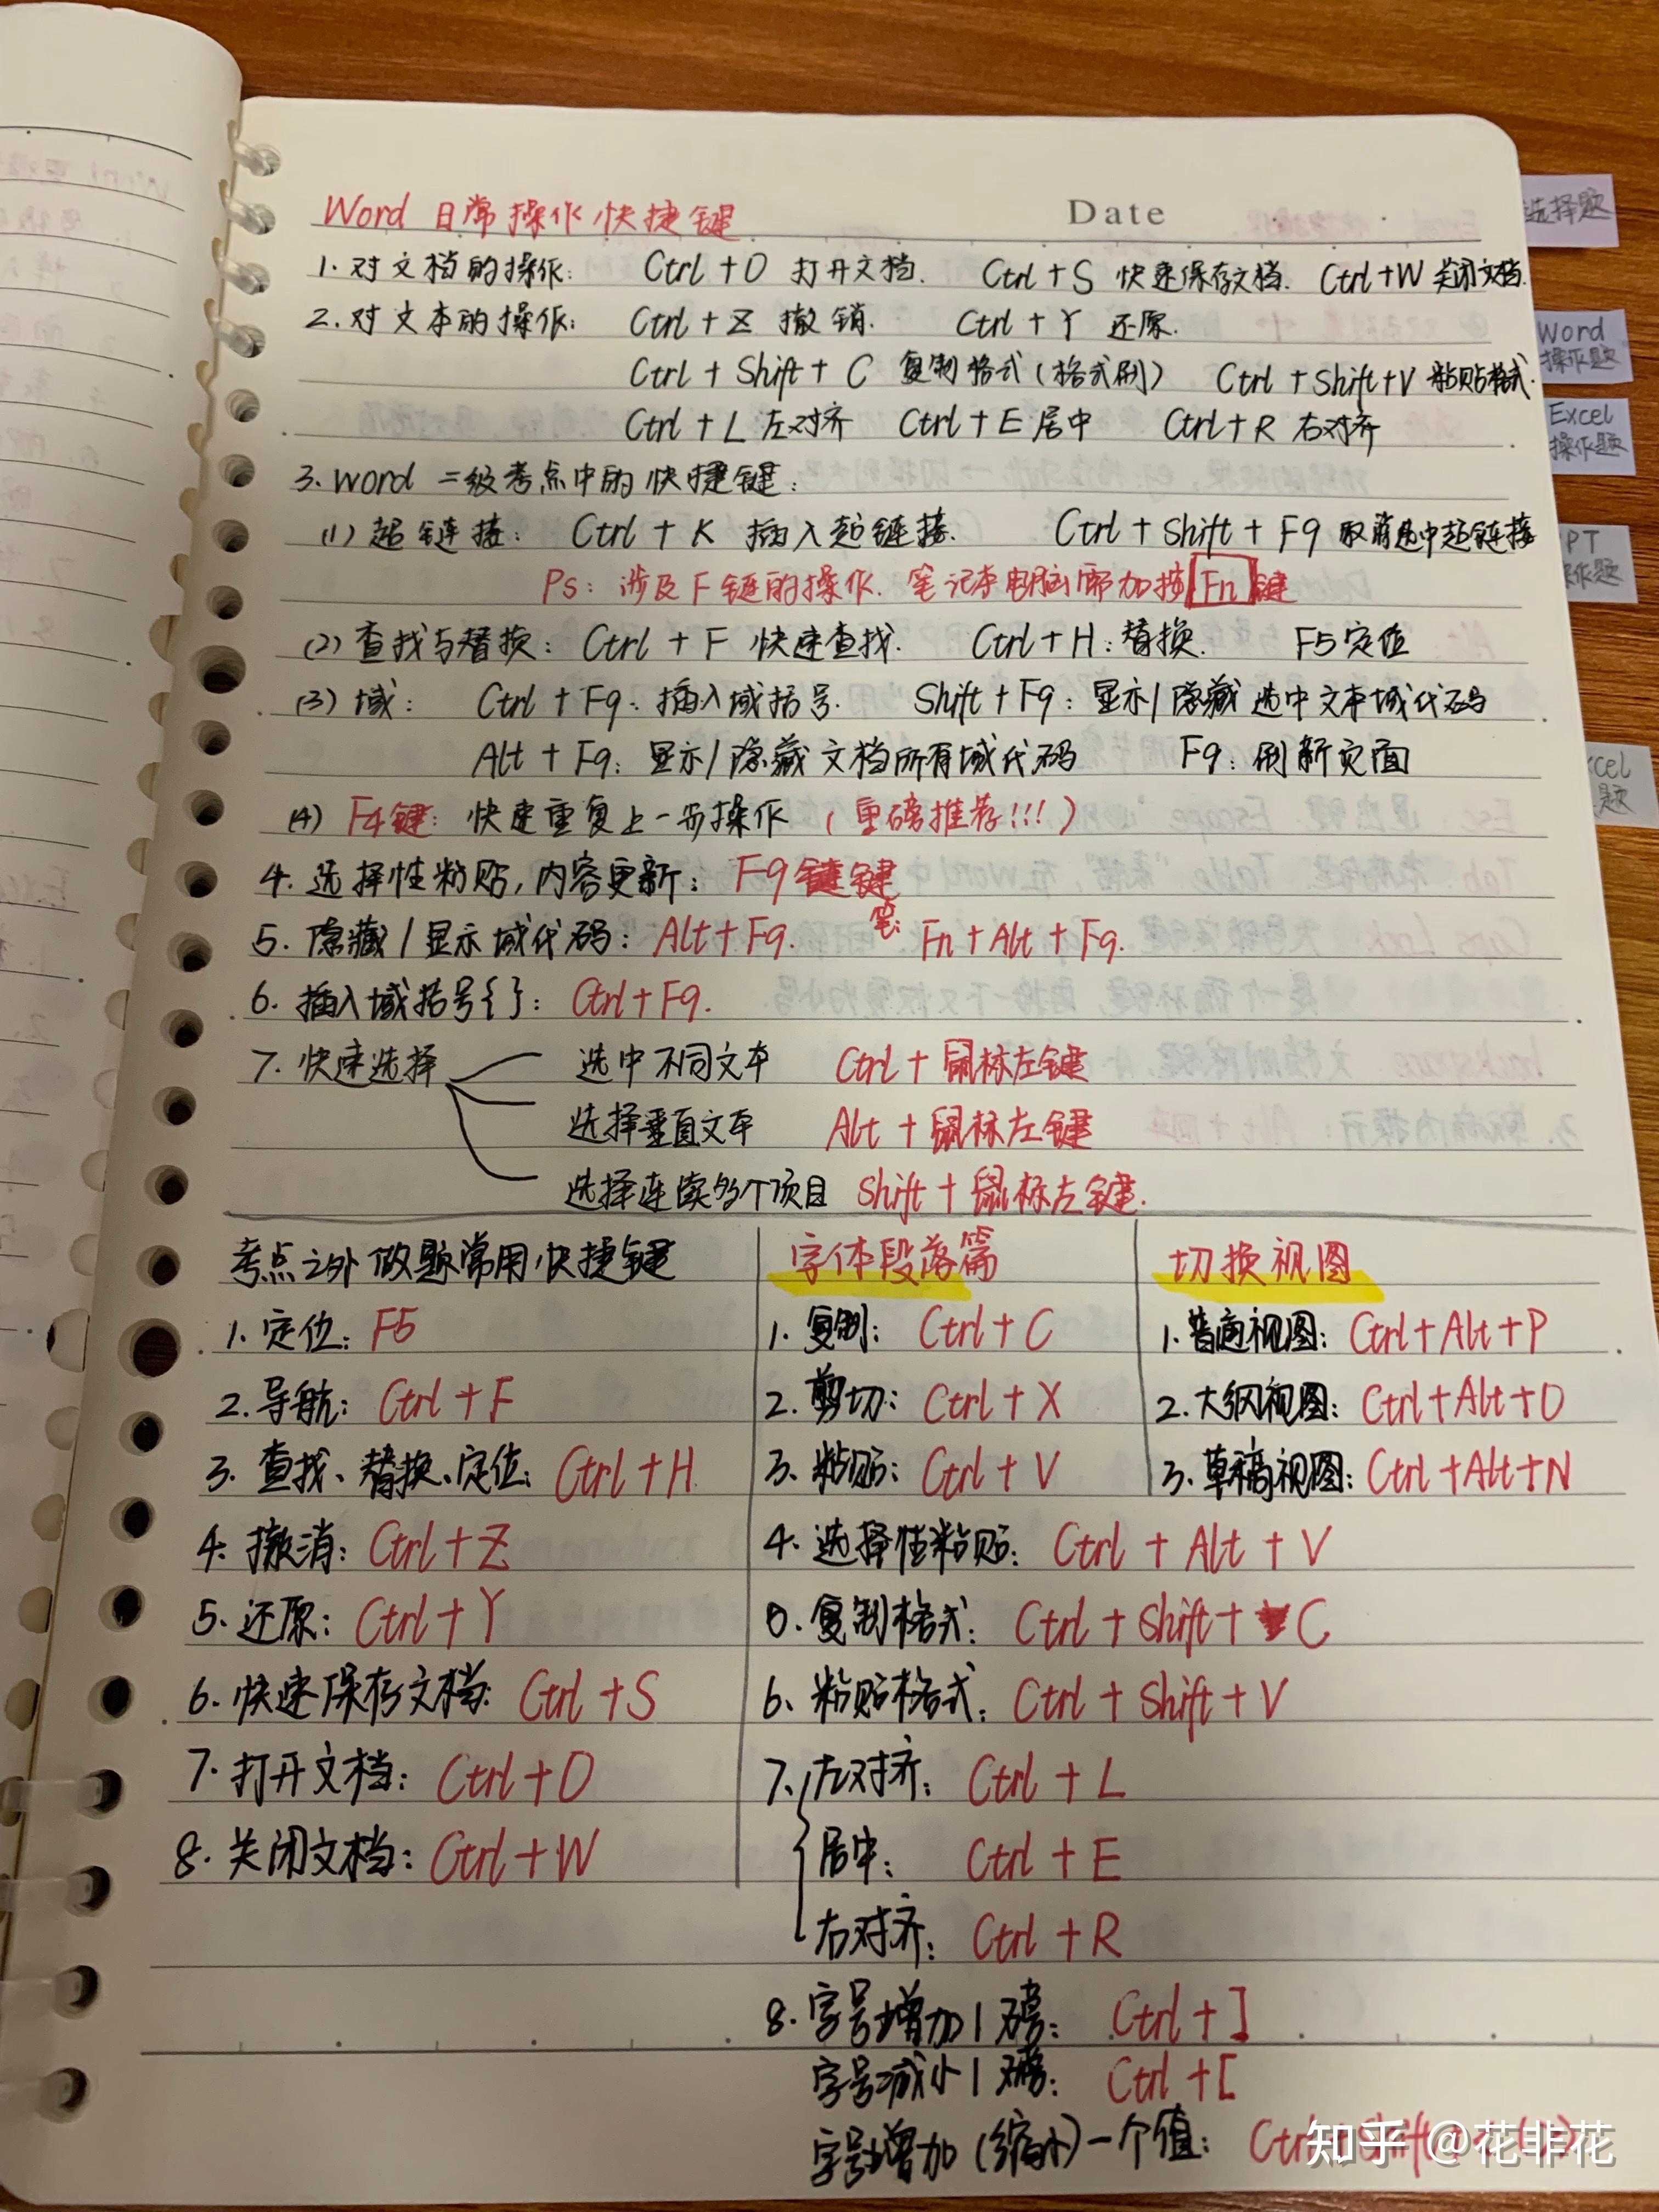 Word 日常操作快捷键
Date
1. 对文档的操作: Ctrl + O 打开文档. Ctrl + S 快速保存文档. Ctrl+W 关闭文档.
2. 对文本的操作: Ctrl + Z 撤销. Ctrl + Y 还原.
Ctrl + Shift + C 复制格式(格式刷) Ctrl + Shift+V 粘贴格式.
Ctrl + L 左对齐 Ctrl + E 居中 Ctrl + R 右对齐
3. Word 二级考点中的快捷键:
(1) 超链接: Ctrl + K 插入超链接. Ctrl + Shift + F9 取消选中超链接
Ps: 涉及F键的操作. 笔记本电脑需加按 Fn 键
(2) 查找与替换: Ctrl + F 快速查找. Ctrl+H: 替换. F5定位
(3) 域: Ctrl + F9: 插入域括号. Shift + F9: 显示/隐藏选中文本域代码
Alt + F9: 显示/隐藏文档所有域代码 F9: 刷新页面
(4) F4键: 快速重复上一步操作 (重磅推荐!!!)
4. 选择性粘贴,内容更新: F9键
5. 隐藏/显示域代码: Alt+F9. 笔: Fn+Alt+F9.
6. 插入域括号{}: Ctrl+F9.
7. 快速选择 选中不同文本 Ctrl+鼠标左键
选择垂直文本 Alt+鼠标左键
选择连续多个项目 Shift+鼠标左键.
考点之外做题常用快捷键
1. 定位: F5
2. 导航: Ctrl+F
3. 查找、替换、定位: Ctrl+H
4. 撤消: Ctrl+Z
5. 还原: Ctrl+Y
6. 快速保存文档: Ctrl+S
7. 打开文档: Ctrl+O
8. 关闭文档: Ctrl+W
字体段落篇
1. 复制: Ctrl+C
2. 剪切: Ctrl+X
3. 粘贴: Ctrl+V
4. 选择性粘贴: Ctrl + Alt + V
5. 复制格式: Ctrl + Shift + C
6. 粘贴格式: Ctrl + Shift + V
7. 左对齐: Ctrl + L
居中: Ctrl + E
右对齐: Ctrl + R
8. 字号增加1磅: Ctrl+]
字号减小1磅: Ctrl+[
字号增加(缩小)一个值:
切换视图
1. 普通视图: Ctrl+Alt+P
2. 大纲视图: Ctrl+Alt+O
3. 草稿视图: Ctrl+Alt+N
选择题
Word
操作题
Excel
操作题
PT
作题
cel
题
知乎 @花非花